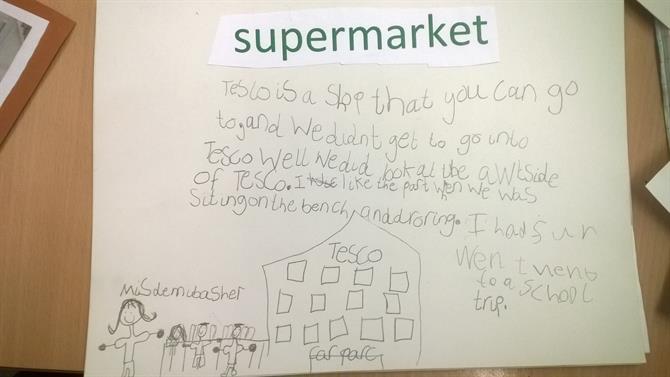 supermarket
Tesco is a shop that you can go
to, and we didnt get to go into
Tesco well we did look at the awtside
of Tesco. I like the part wen we was
sitingonthe bench anddroring. I had fun
wen
to a school
trip.
Tesco
car parc